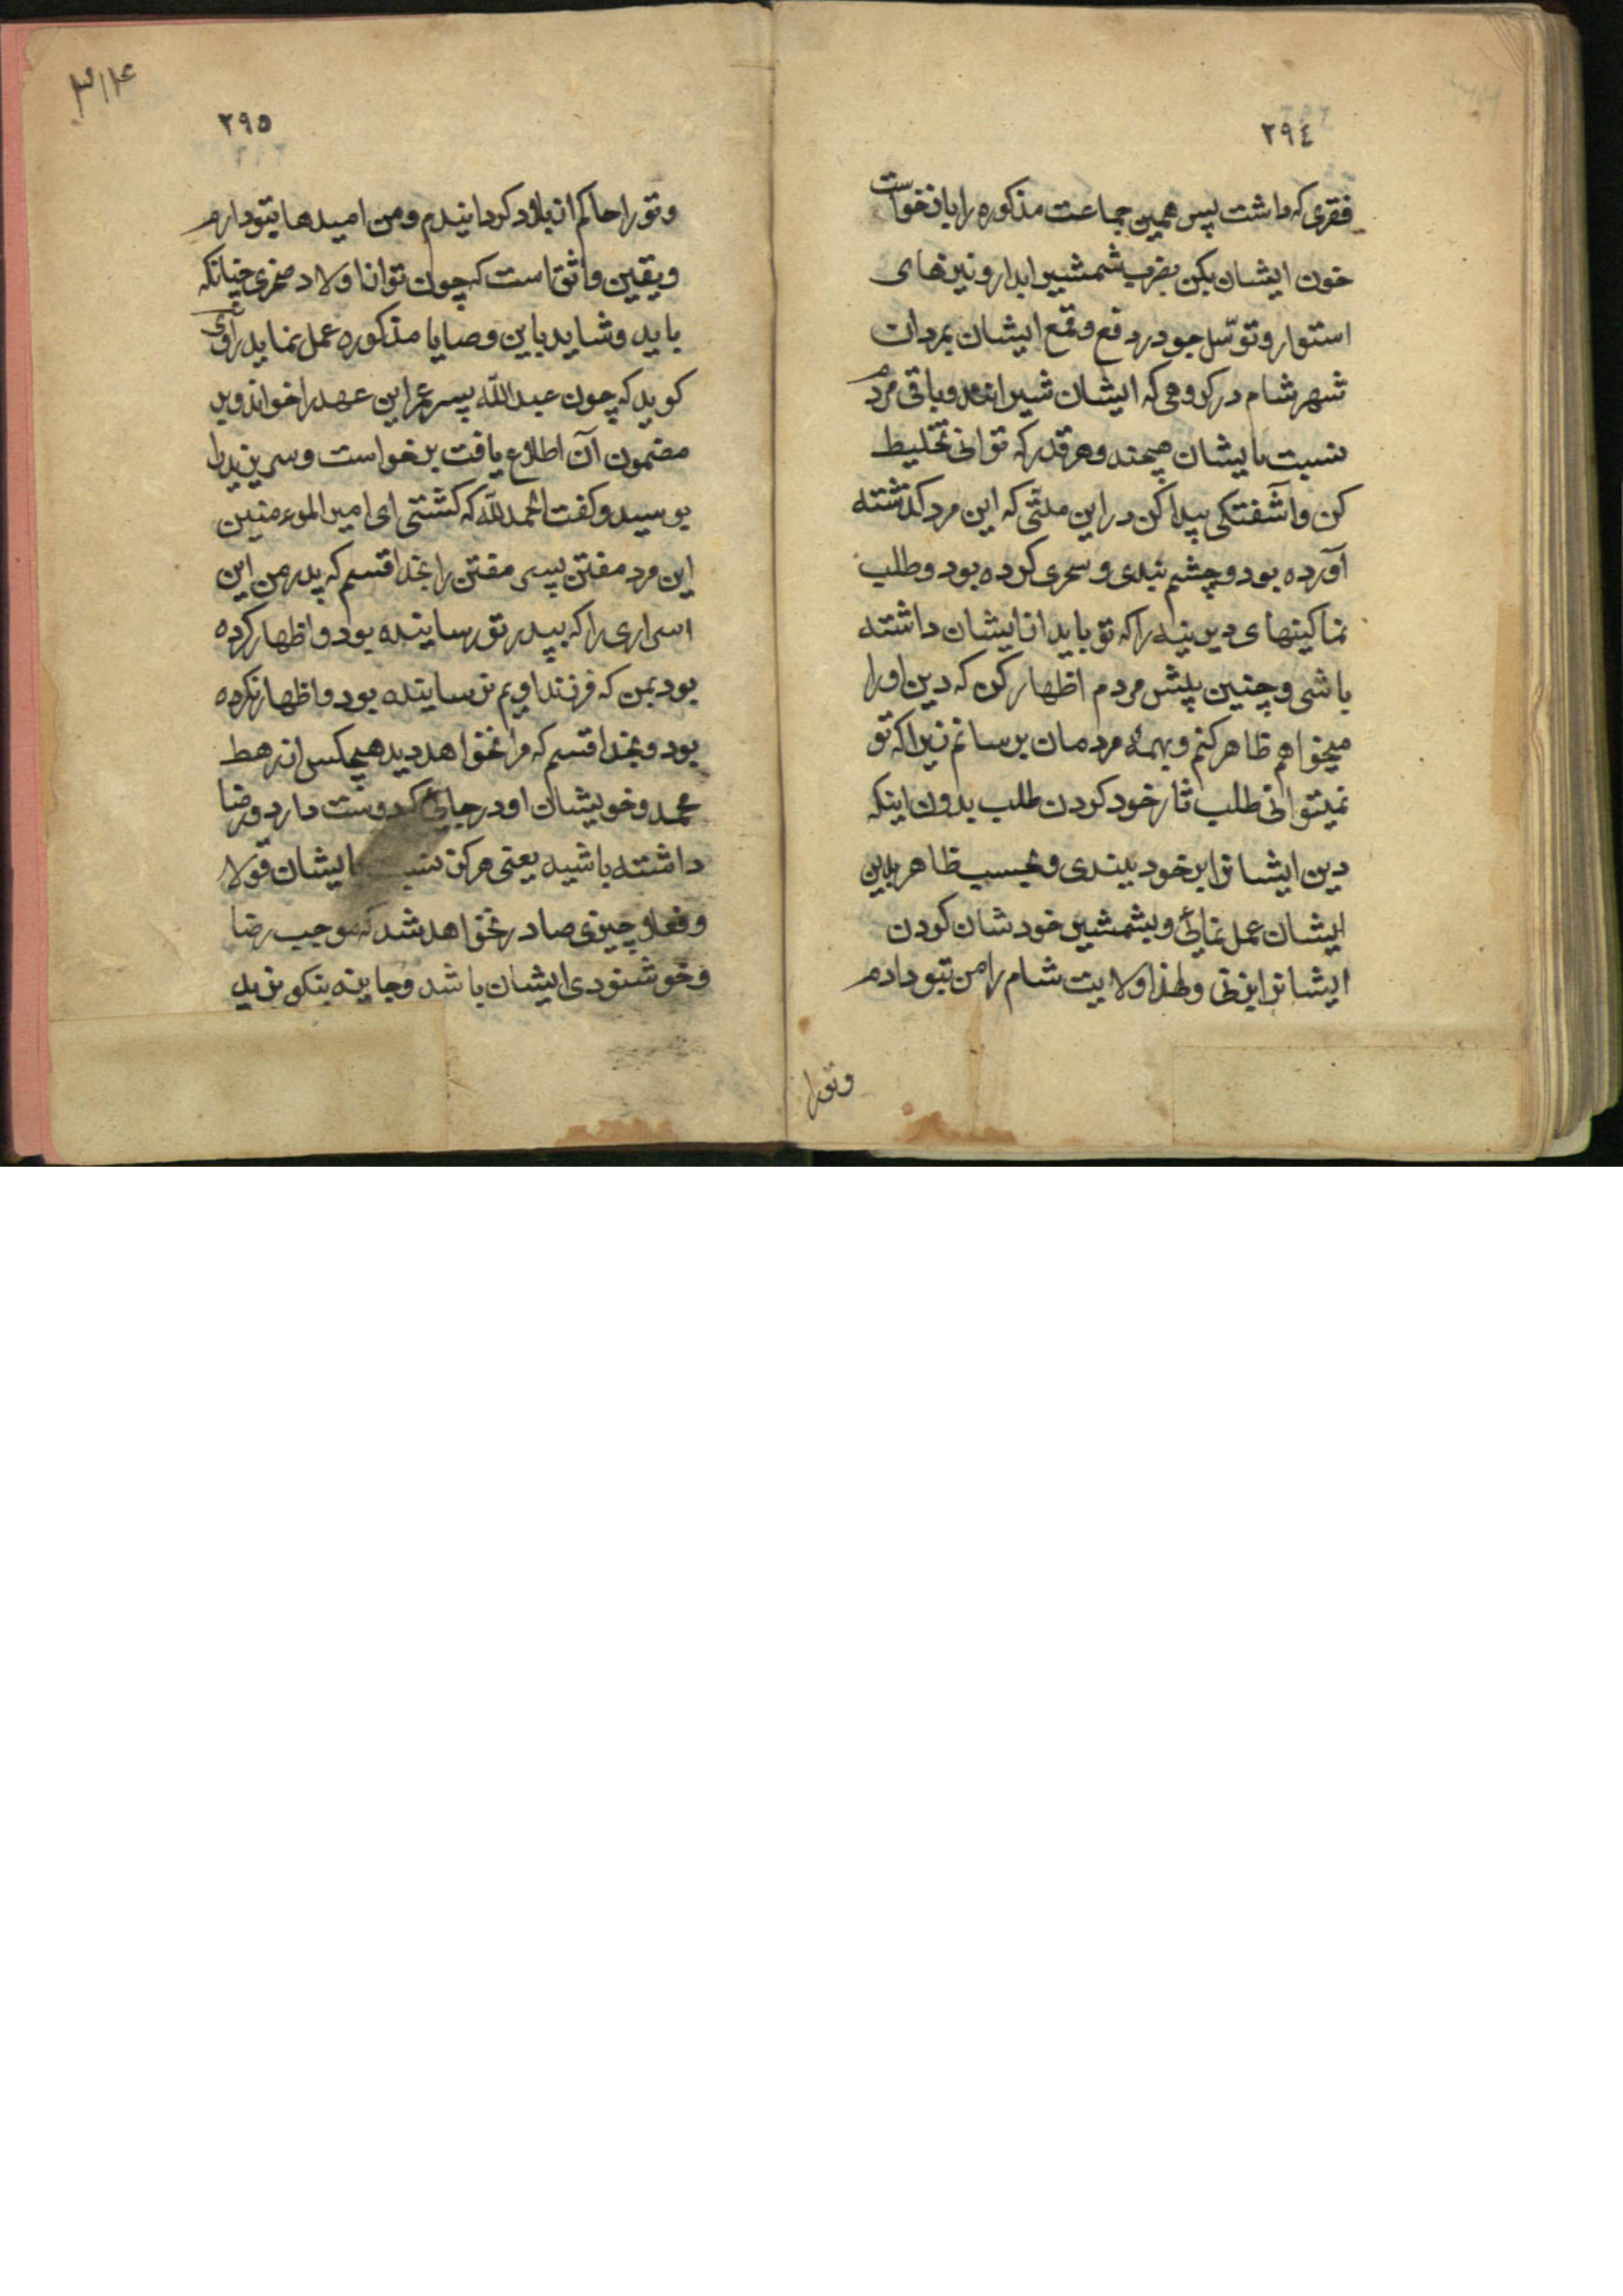 ٢٩٤
فقری که داشت پس همین جماعت مذکوره را باز خواست
خون ایشان بکن بضرب شمشیر ابدار و نیزهای
استوار و توسّل جو در دفع و قمع ایشان بمردان
شهر شام در گروهی که ایشان شیرانند و باقی مردم
نسبت بایشان هیچند و هر قدر که توانی تخلیط
کن و آشفتکی پیدا کن در این ملتی که این مرد کذشته
آورده بود و چشم بندی و سحری کرده بود و طلب
نما کینهای دیرینه را که تو باید از ایشان داشته
باشی و چنین پیش مردم اظهار کن که دین او را
میخواهم ظاهر کنم و بهمهٔ مردمان برسانم زیرا که تو
نمیتوانی طلب ثار خود کردن طلب بدون اینکه
دین ایشانرا بر خود ببندی و بحسب ظاهر بدین
ایشان عمل نمائی و بشمشیر خودشان کودن
ایشانرا بزنی و لهذا ولایت شام را من بتو دادم
وتورا
٣١۴
٢٩٥
و تو را حاکم ان بلاد کردانیدم و من امیدها بتو دارم
و یقین واثق است که چون تو از اولاد صخری چنانکه
باید و شاید باین وصایا مذکوره عمل نماید راوی
کوید که چون عبدالله پسر عمر این عهد را خواند و بر
مضمون آن اطلاع یافت برخواست و سر یزید را
بوسید و کفت الحمدلله که کشتی ای امیر الموءمنین
این مرد مفتن پسر مفتن را بخدا قسم که پدر من این
اسراری را که بپدر تو رسانیده بود و اظهار کرده
بود بمن که فرزند اویم نرسانیده بود و اظهار نکرده
بود و بخدا قسم که مرا نخواهد دید هیچکس از رهط
محمد و خویشان او در جائی که دوست دارد و رضا
داشته باشید یعنی هرکز نسبت بایشان قولا
و فعلا چیزی صادر نخواهد شد که موجب رضا
و خوشنودی ایشان باشد و جایزه نیکو یزید